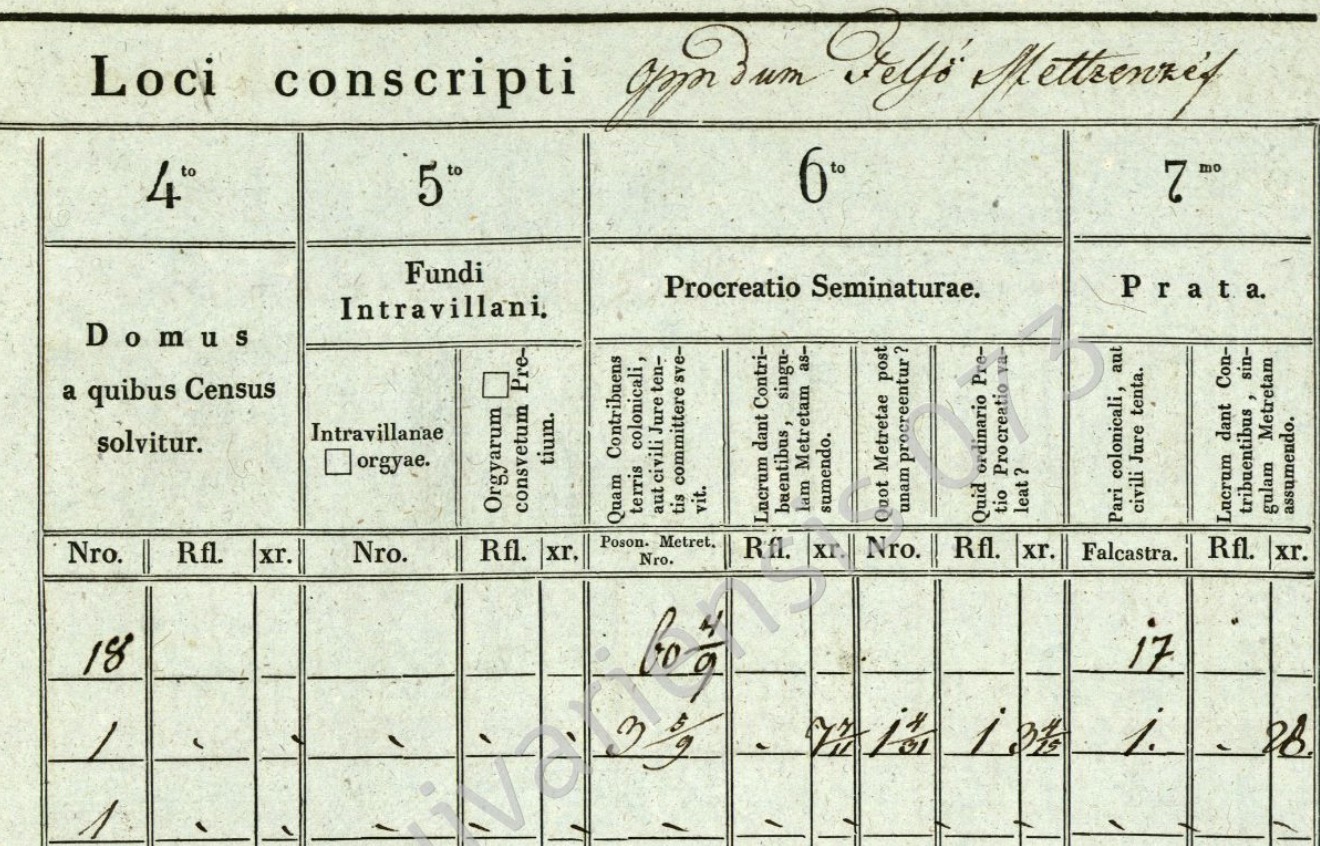 Loci conscripti Oppidum Felső Mettzenzéf
4to 5to 6to 7mo
Domus a quibus Census solvitur.
Fundi Intravillani.
Procreatio Seminaturae.
Prata.
Intravillanae □ orgyae.
Orgyarum □ consvetum Pre-
tium.
Quam Contribuens
terris colonicali,
aut civili Jure ten-
tis committere sve-
vit.
Lucrum dant Contri-
buentibus, singu-
lam Metretam as-
sumendo.
Quot Metretae post
unam procreentur?
Quid ordinario Pre-
tio Procreatio va-
leat?
Pari colonicali, aut
civili Jure tenta.
Lucrum dant Con-
tribuentibus, sin-
gulam Metretam
assumendo.
Nro. Rfl. xr. Nro. Rfl. xr. Poson. Metret. Nro. Rfl. xr. Nro. Rfl. xr. Falcastra. Rfl. xr.
18 60 4/9 17
1 3 5/9 1 4/31 1 3 4/15 1. 28.
1
073